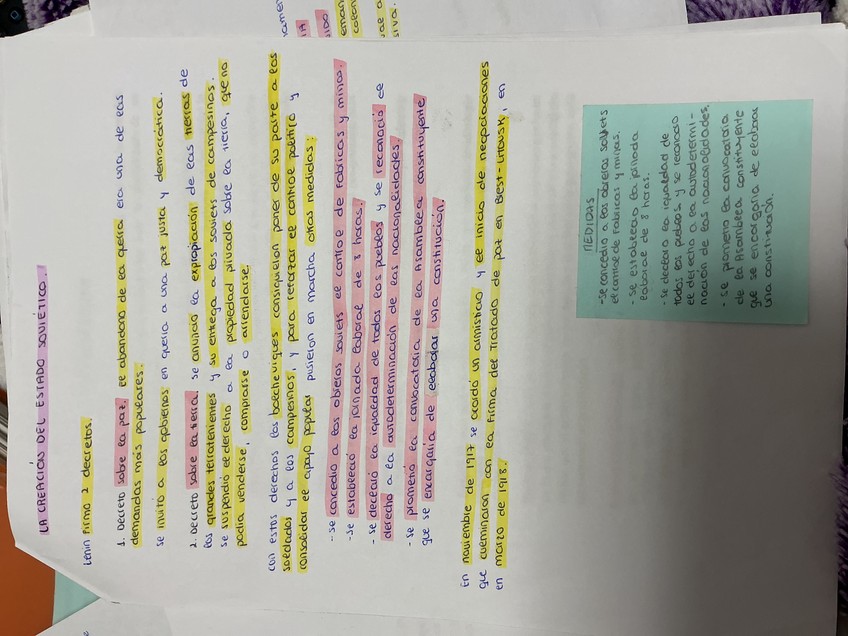 LA CREACIÓN DEL ESTADO SOVIÉTICO.
Lenin firma 2 decretos.
1. Decreto sobre la paz. El abandono de la guerra era una de las
demandas más populares.
se invitó a los gobiernos en guerra a una paz justa y democrática.
2. Decreto sobre la tierra. se anunció la expropiación de las tierras de
los grandes terratenientes y su entrega a los soviets de campesinos.
se suspendió el derecho a la propiedad privada sobre la tierra, que no
podía venderse, comprarse o arrendarse.
Con estos derechos los bolcheviques consiguieron poner de su parte a los
soldados y a los campesinos, y para reforzar el control político y
consolidar el apoyo popular pusieron en marcha otras medidas:
- se concedió a los obreros soviets el control de fábricas y minas.
- se estableció la jornada laboral de 8 horas.
- se declaró la igualdad de todos los pueblos y se reconoció el
derecho a la autodeterminación de las nacionalidades.
- se prometió la convocatoria de la Asamblea constituyente
que se encargaría de elaborar una constitución.
En noviembre de 1917 se acordó un armisticio y el inicio de negociaciones
que culminaron con la firma del Tratado de paz en Brest-Litovsk, en
en marzo de 1918.
MEDIDAS
- se concedió a los obreros soviets
el control de fábricas y minas.
- se estableció la jornada
laboral de 8 horas.
- se declaró la igualdad de
todos los pueblos y se reconoció
el derecho a la autodetermi-
nación de las nacionalidades.
- se prometió la convocatoria
de la Asamblea constituyente
que se encargaría de elaborar
una constitución.